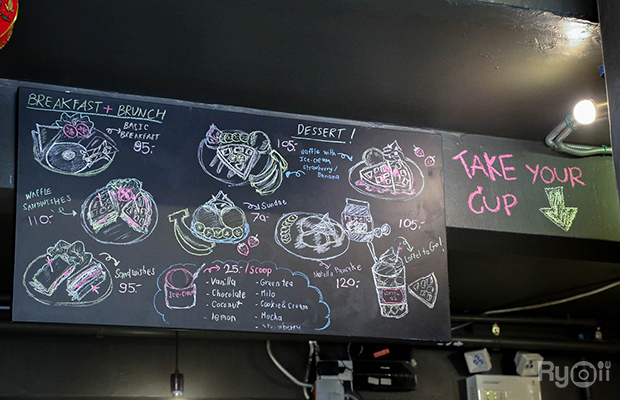 BREAKFAST + BRUNCH
BASIC
BREAKFAST
95.-
WAFFLE
SANDWICHES
110.-
Sandwiches
95.-
DESSERT !
105.-
Waffle with
Ice-cream
Strawberry/
Banana
Sundae
70.-
105.-
Nutella Pancake
120.-
Waffel to Go!
Ice-Cream
25.-/Scoop
• Vanilla
• Chocolate
• Coconut
• Lemon
• Green tea
• Milo
• Cookie & Cream
• Mocha
• Strawberry
TAKE YOUR
CUP
Ryoii